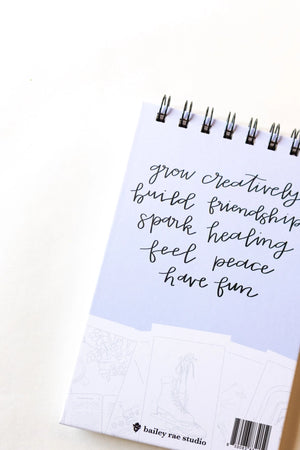 grow creatively
build friendship
spark healing
feel peace
have fun
bailey rae studio